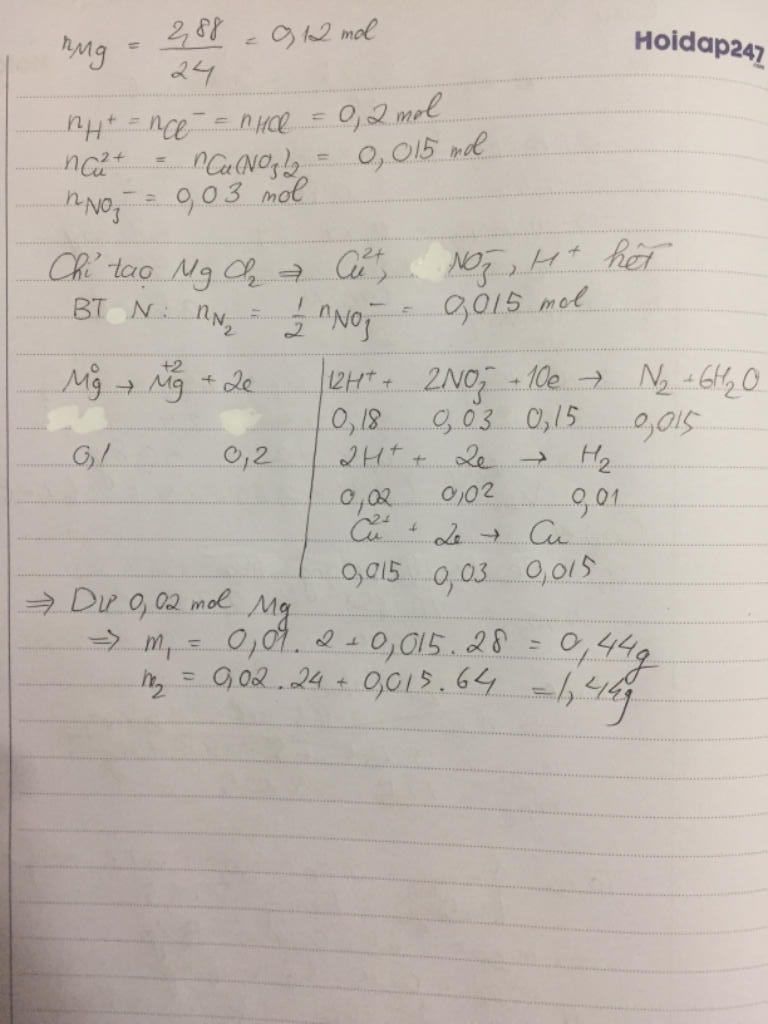 nMg = 2,88/24 = 0,12 mol
Hoidap247.com
nH+ = nCl- = nHCl = 0,2 mol
nCu2+ = nCu(NO3)2 = 0,015 mol
nNO3- = 0,03 mol
Chỉ tạo MgCl2 ⇒ Cu2+, NO3-, H+ hết
BT N: nN2 = 1/2 nNO3- = 0,015 mol
Mg0 → Mg+2 + 2e
0,1 0,2
12H+ + 2NO3- + 10e → N2 + 6H2O
0,18 0,03 0,15 0,015
2H+ + 2e → H2
0,02 0,02 0,01
Cu2+ + 2e → Cu
0,015 0,03 0,015
⇒ Dư 0,02 mol Mg
⇒ m1 = 0,01.2 + 0,015.28 = 0,44g
m2 = 0,02.24 + 0,015.64 = 1,44g